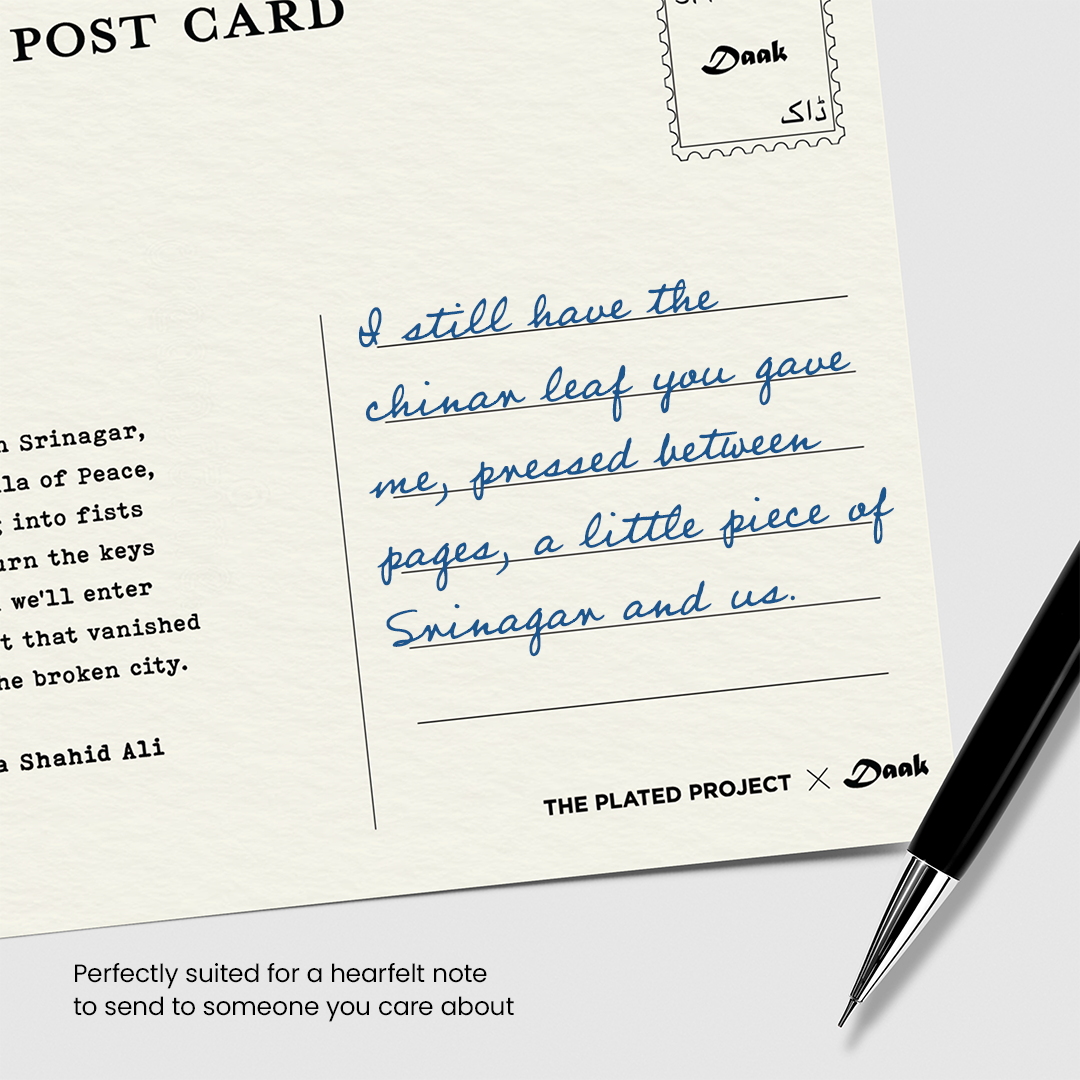 POST CARD
Daak
ڈاک
I still have the
chinar leaf you gave
me, pressed between
pages, a little piece of
Srinagar and us.
Srinagar,
of Peace,
into fists
the keys
we'll enter
that vanished
broken city.
Shahid Ali
THE PLATED PROJECT X Daak
Perfectly suited for a hearfelt note
to send to someone you care about